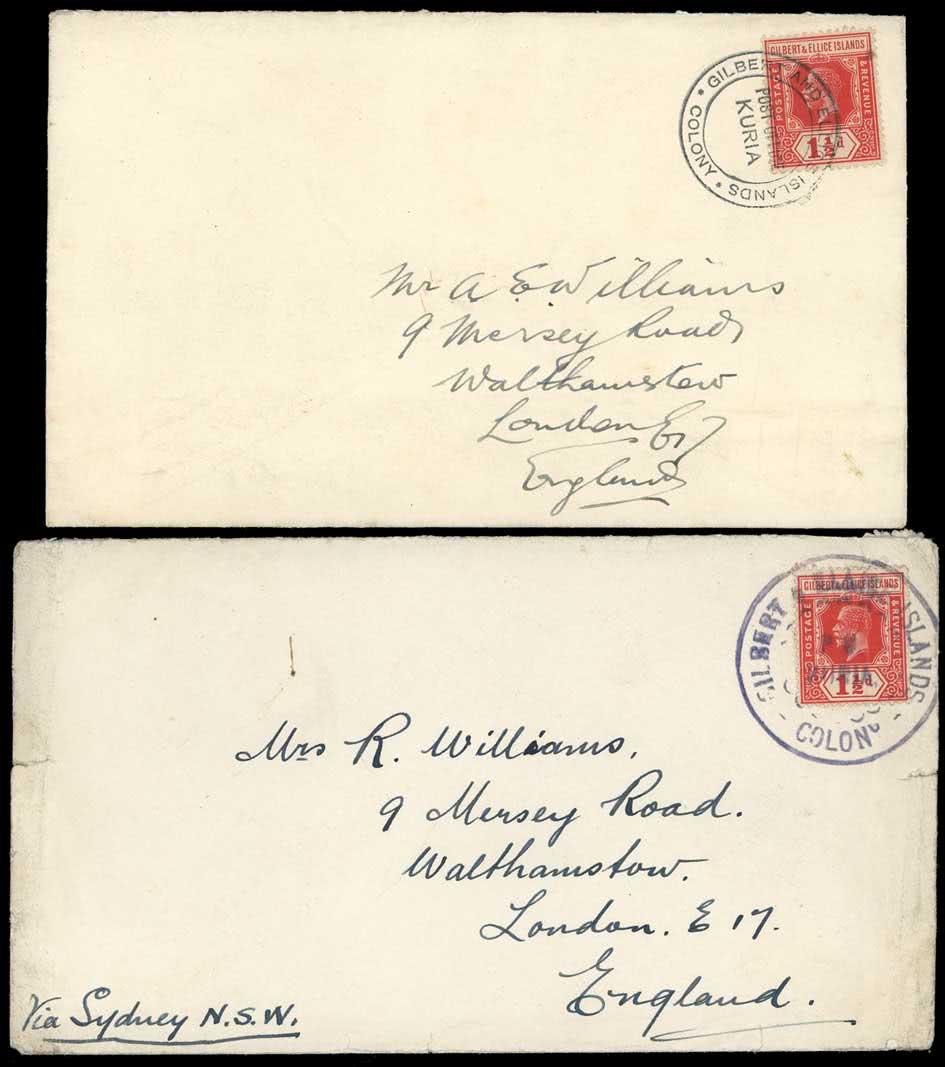 GILBERT & ELLICE ISLANDS
POSTAGE
& REVENUE
1½d
GILBERT AND ELLICE ISLANDS
• COLONY •
POST OFFICE
KURIA
Mr A E Williams
9 Mersey Road
Walthamstow
London E17
England
GILBERT & ELLICE ISLANDS
POSTAGE
& REVENUE
1½d
GILBERT & ELLICE ISLANDS
- COLONY -
KURIA
Mrs R. Williams,
9 Mersey Road.
Walthamstow.
London. E 17.
England.
Via Sydney N.S.W.